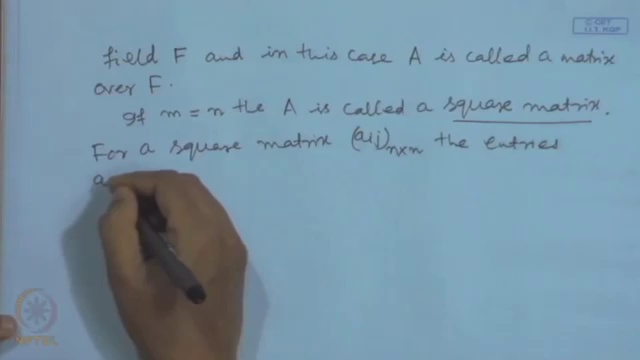 C-CET
I.I.T. KGP
field F and in this case A is called a matrix
over F.
If m = n the A is called a square matrix.
For a square matrix (aij)n×n the entries
a
NPTEL